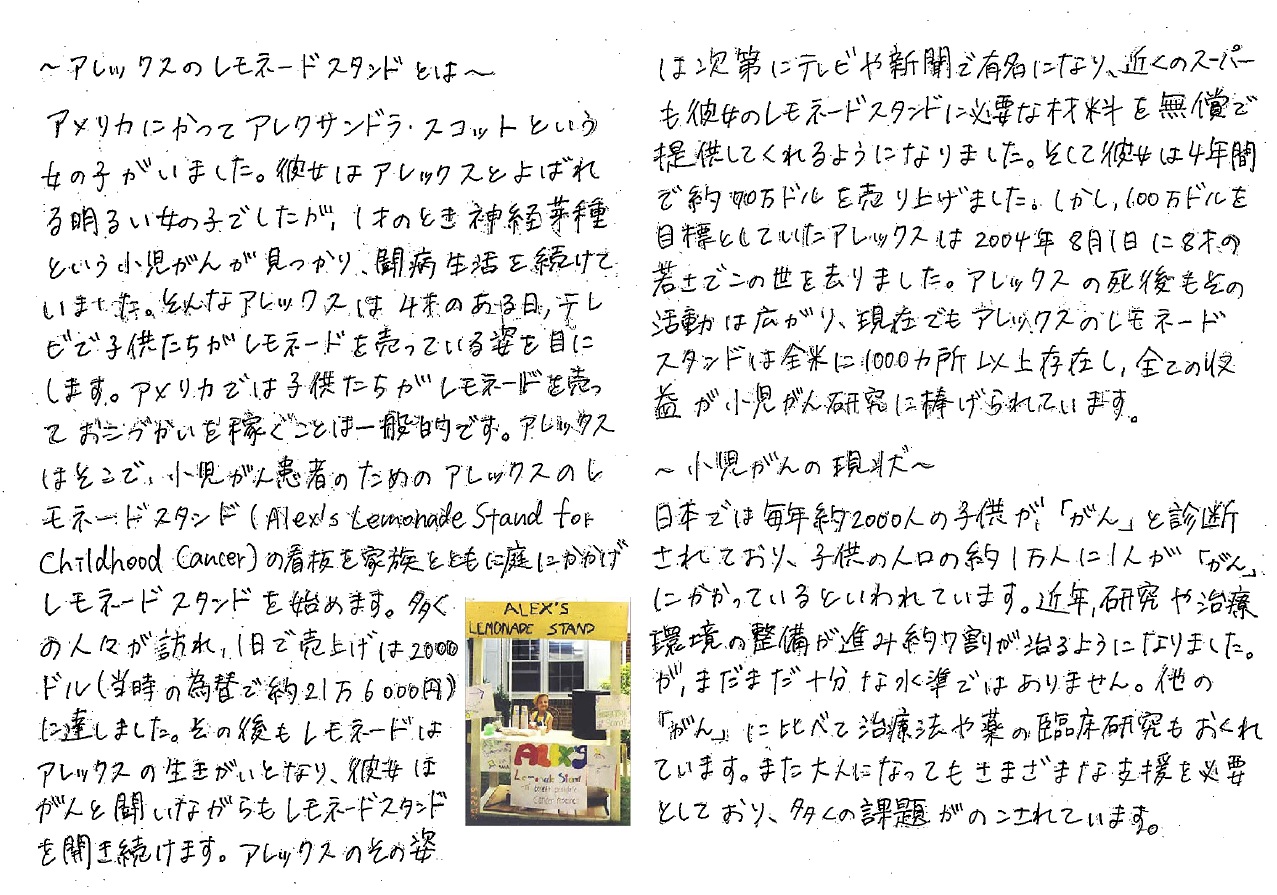 ~アレックスのレモネードスタンドとは~
アメリカにかつてアレクサンドラ・スコットという
女の子がいました。彼女はアレックスとよばれ
る明るい女の子でしたが、1才のとき神経芽種
という小児がんが見つかり、闘病生活を続けて
いました。そんなアレックスは4才のある日,テレ
ビで子供たちがレモネードを売っている姿を目に
します。アメリカでは子供たちがレモネードを売っ
ておこづかいを稼ぐことは一般的です。アレックス
はそこで、小児がん患者のためのアレックスのレ
モネードスタンド(Alex's Lemonade Stand for
Childhood Cancer)の看板を家族とともに庭にかかげ
レモネードスタンドを始めます。多く
の人々が訪れ,1日で売上げは2000
ドル(当時の為替で約21万6000円)
に達しました。その後もレモネードは
アレックスの生きがいとなり、彼女は
がんと闘いながらもレモネードスタンド
を開き続けます。アレックスのその姿
ALEX'S
LEMONADE STAND
ALEX'S
Lemonade Stand
は次第にテレビや新聞で有名になり、近くのスーパー
も彼女のレモネードスタンドに必要な材料を無償で
提供してくれるようになりました。そして彼女は4年間
で約 万ドルを売り上げました。しかし,100万ドルを
目標としていたアレックスは2004年8月1日に8才の
若さでこの世を去りました。アレックスの死後もその
活動は広がり、現在でもアレックスのレモネード
スタンドは全米に1000カ所以上存在し,全ての収
益が小児がん研究に捧げられています。
~小児がんの現状~
日本では毎年約2000人の子供が、「がん」と診断
されており、子供の人口の約1万人に1人が「がん」
にかかっているといわれています。近年,研究や治療
環境の整備が進み約7割が治るようになりました。
が,まだまだ十分な水準ではありません。他の
「がん」に比べて治療法や薬の臨床研究もおくれ
ています。また大人になってもさまざまな支援を必要
としており、多くの課題がのこされています。